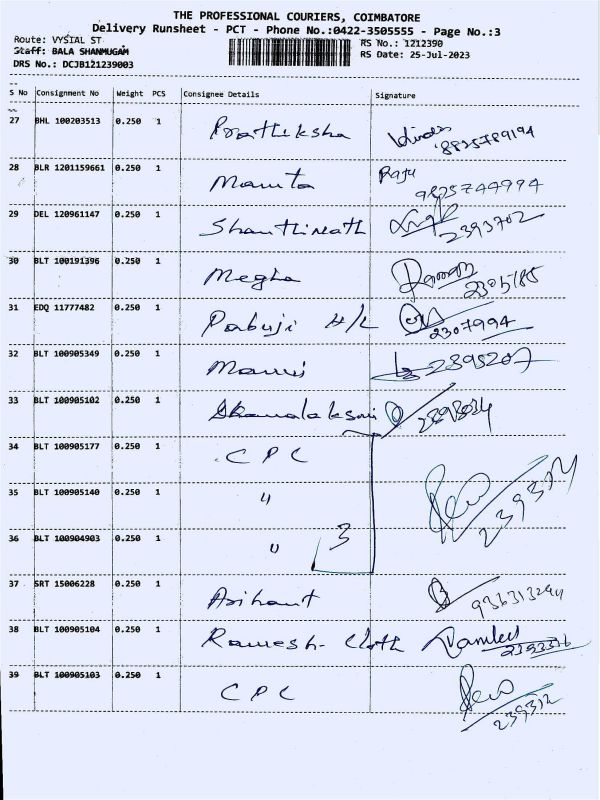 THE PROFESSIONAL COURIERS, COIMBATORE
Delivery Runsheet - PCT - Phone No.:0422-3505555 - Page No.:3
Route: VYSIAL ST RS No.: 1212390
Staff: BALA SHANMUGAM RS Date: 25-Jul-2023
DRS No.: DCJB121239003
S No Consignment No Weight PCS Consignee Details Signature
27 BHL 100203513 0.250 1 Prathiksha 8825789194
28 BLR 1201159661 0.250 1 Mamta Raju 9825744994
29 DEL 120961147 0.250 1 Shanthinath 2393702
30 BLT 100191396 0.250 1 Megha Raman 2305185
31 EDQ 11777482 0.250 1 Pabuji H/L 2307994
32 BLT 100905349 0.250 1 2395207
33 BLT 100905102 0.250 1
34 BLT 100905177 0.250 1 C P C
35 BLT 100905140 0.250 1 "
36 BLT 100904903 0.250 1 " 3
37 SRT 15006228 0.250 1 Arihant
38 BLT 100905104 0.250 1 Ramesh Cloth
39 BLT 100905103 0.250 1 C P C